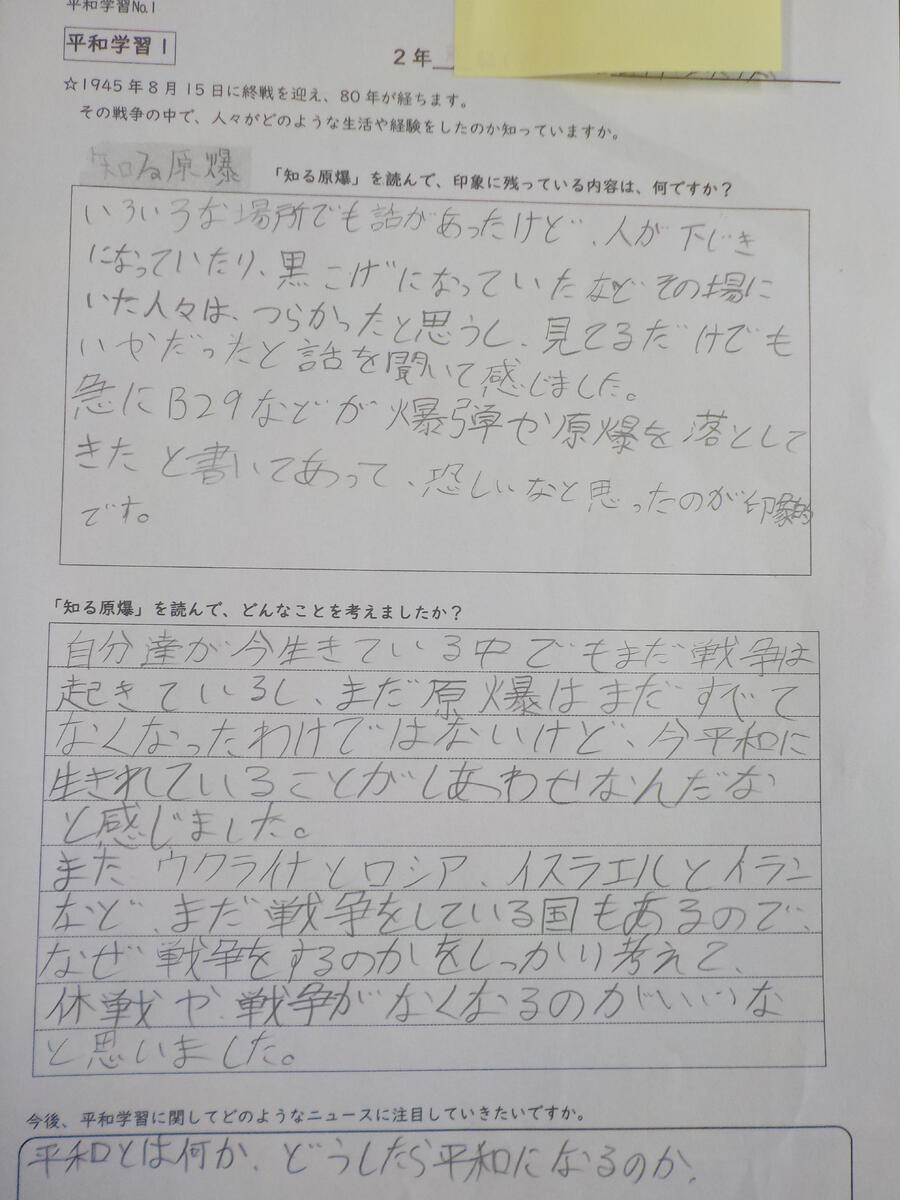 平和学習No.1
平和学習1
2年
☆1945年8月15日に終戦を迎え、80年が経ちます。
その戦争の中で、人々がどのような生活や経験をしたのか知っていますか。
知る原爆
「知る原爆」を読んで、印象に残っている内容は、何ですか?
いろいろな場所でも話があったけど、人が下じき
になっていたり、黒こげになっていたなどその場に
いた人々は、つらかったと思うし、見てるだけでも
いやだったと話を聞いて感じました。
急にB29などが爆弾や原爆を落として
きたと書いてあって、恐しいなと思ったのが印象的
です。
「知る原爆」を読んで、どんなことを考えましたか?
自分達が今生きている中でもまだ戦争は
起きているし、まだ原爆はまだすべて
なくなったわけではないけど、今平和に
生きれていることがしあわせなんだな
と感じました。
またウクライナとロシア、イスラエルとイラン
など、まだ戦争をしている国もあるので、
なぜ戦争をするのかをしっかり考えて、
休戦や、戦争がなくなるのがいいな
と思いました。
今後、平和学習に関してどのようなニュースに注目していきたいですか。
平和とは何か、どうしたら平和になるのか、